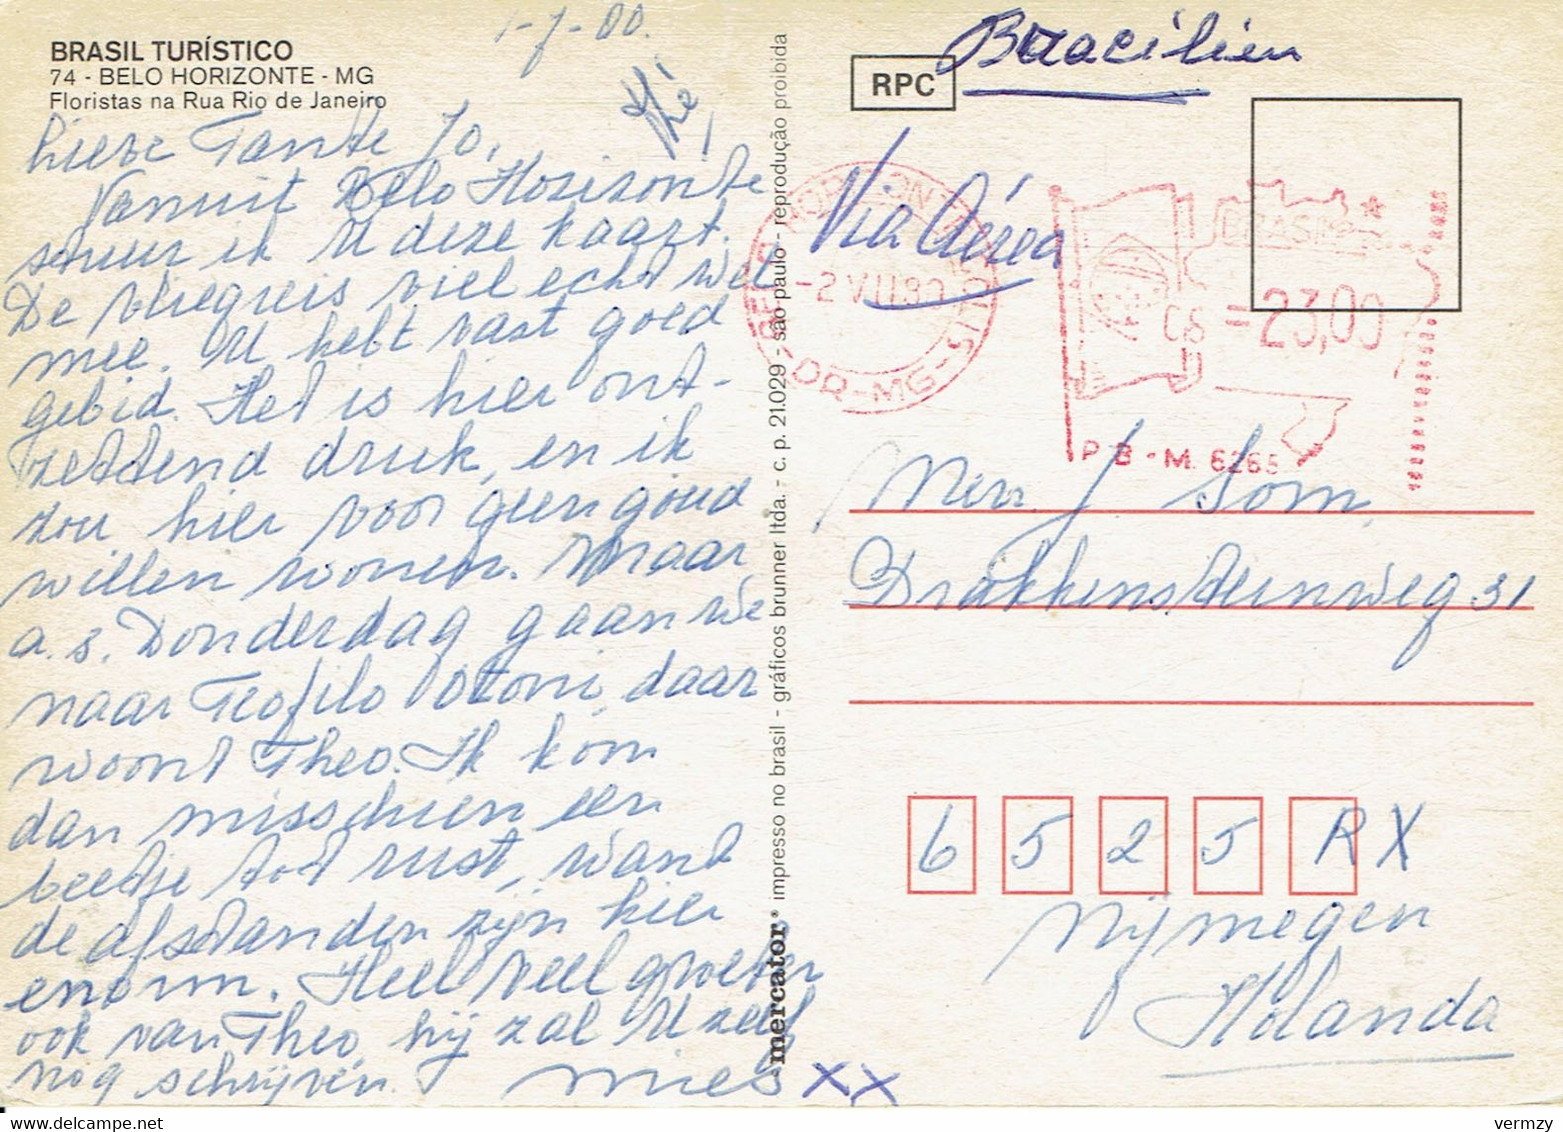 BRASIL TURÍSTICO
74 - BELO HORIZONTE - MG
Floristas na Rua Rio de Janeiro
1-7-80.
lieve Tante Jo,
Vanuit Belo Horizonte
stuur ik U deze kaart.
De vliegreis viel echt wel
mee. U hebt vast goed
gebid. Het is hier ont-
zettend druk, en ik
zou hier voor geen goud
willen wonen. Maar
a.s. Donderdag gaan we
naar Teofilo Otoni, daar
woont Theo. Ik kom
dan misschien een
beetje tot rust, want
de afstanden zijn hier
enorm. Heel veel groeten
ook van Theo, hij zal U zelf
nog schrijven.
Mies XX
mercator® impresso no brasil - gráficos brunner ltda. - c. p. 21.029 - são paulo - reprodução proibida
RPC
Bracilien
Via Aérea
BELO HORIZONTE
-2 VII 80
DR-MG-
BRASIL
C$ =23,00
P B - M. 6265
Mevr J Som
Drakkensteinweg 31
6 5 2 5 RX
Nijmegen
Holanda
vermzy